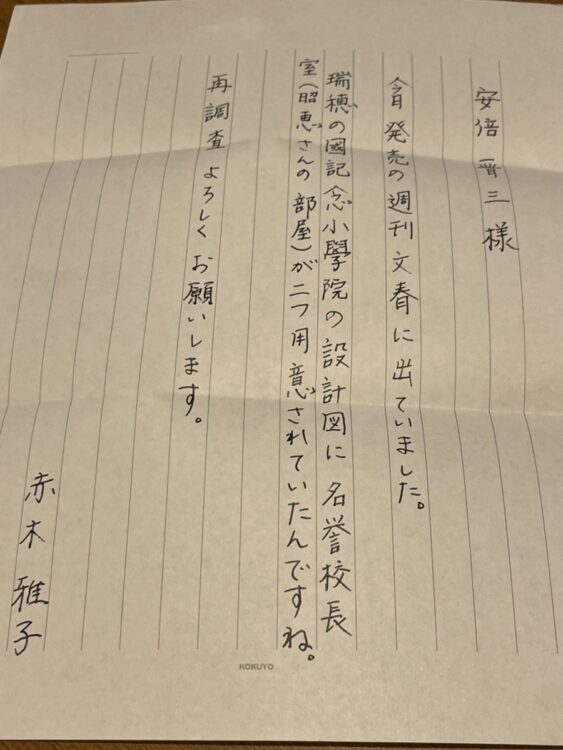 安倍晋三様
今日発売の週刊文春に出ていました。
瑞穂の國記念小學院の設計図に名誉校長
室(昭恵さんの部屋)が二つ用意されていたんですね。
再調査よろしくお願いします。
赤木雅子
KOKUYO